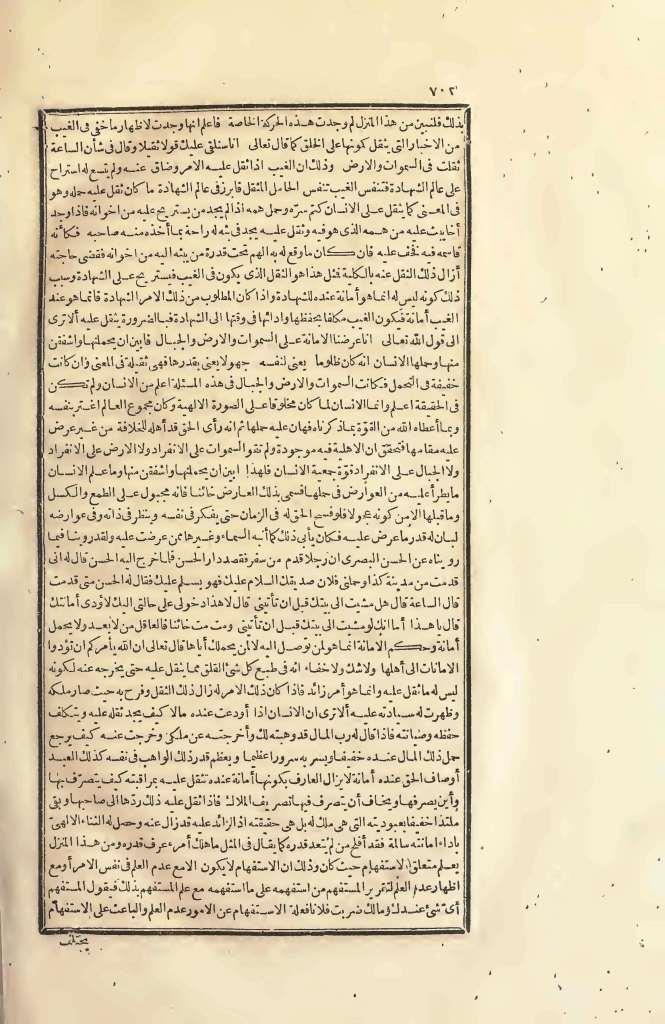 ٧٠٢
بذلك فلنبين من هذا المنزل لم وجدت هذه الحركة الخاصة فاعلم انها وجدت لاظهار ما خفي في الغيب
من الاخبار التي يثقل كونها على الخلق كما قال تعالى انا سنلقي عليك قولا ثقيلا وقال في شأن الساعة
ثقلت في السموات والارض وذلك ان الغيب اذا ثقل عليه الامر وضاق عنه ولم يتسع له استراح
على عالم الشهادة فتنفس الغيب تنفس الحامل المثقل فابرز في عالم الشهادة ما كان ثقل عليه حمله وهو
في المعنى كما يثقل على الانسان كتم سره وحمل همه اذا لم يجد من يستريح عليه من اخوانه فاذا وجد
أخا يبث عليه من همه الذي هو فيه وثقل عليه يجد في بثه له راحة بما أخذه منه صاحبه فكأنه
قاسمه فيه فخف عليه فان كان ما وقع له به الهم تحت قدرة من يبثه اليه من اخوانه فقضى حاجته
أزال ذلك الثقل عنه بالكلية فمثل هذا هو الثقل الذي يكون في الغيب فيستريح على الشهادة وسبب
ذلك كونه ليس له انما هو أمانة عنده للشهادة واذا كان المطلوب من ذلك الامر الشهادة فانما هو عند
الغيب أمانة فيكون الغيب مكلفا بحفظها وادائها في وقتها الى الشهادة فبالضرورة يثقل عليه ألا ترى
الى قول الله تعالى انا عرضنا الامانة على السموات والارض والجبال فابين ان يحملنها واشفقن
منها وحملها الانسان انه كان ظلوما يعني لنفسه جهولا يعني بقدرها فهي ثقيلة في المعنى وان كانت
خفيفة في التحمل فكانت السموات والارض والجبال في هذه المسئلة اعلم من الانسان ولم تكن
في الحقيقة اعلم وانما الانسان لما كان مخلوقا على الصورة الالهية وكان مجموع العالم اغتر بنفسه
وبما أعطاه الله من القوة بما ذكرناه فهان عليه حملها ثم انه رأى الحق قد أهله للخلافة من غير عرض
عليه مقامها فتحقق ان الاهلية فيه موجودة ولم تقو السموات على الانفراد ولا الارض على الانفراد
ولا الجبال على الانفراد قوة جمعية الانسان فلهذا ابين ان يحملنها واشفقن منها وما علم الانسان
ما يطرأ عليه من العوارض في حملها فسمى بذلك العارض خائنا فانه مجبول على الطمع والكسل
وما قبلها الا من كونه عجولا فلو فسح الحق له في الزمان حتى يفكر في نفسه وينظر في ذاته وفي عوارضه
لبان له قدر ما عرض عليه فكان يأبى ذلك كما أبته السماء وغيرها ممن عرضت عليه ولقد روينا فيما
رويناه عن الحسن البصري ان رجلا قدم من سفر فقصد دار الحسن فلما خرج اليه الحسن قال له اني
قدمت من مدينة كذا وحملني فلان صديقك السلام عليك فهو يسلم عليك فقال له الحسن متى قدمت
قال الساعة قال هل مشيت الى بيتك قبل ان تأتيني قال لا هذا دخولي على حالتي اليك لاؤدي أمانتك
قال يا هذا أما انك لو مشيت الى بيتك قبل ان تأتيني ومت مت خائنا فالعاقل من لا يعد ولا يحمل
أمانة وحكم الامانة انما هو لمن توصل اليه لا لمن يحملك أياها قال تعالى ان الله يأمركم ان تؤدوا
الامانات الى أهلها ولا شك ولا خفاء انه في طبع كل شئ القلق مما يثقل عليه حتى يخرجه عنه لكونه
ليس له ما ثقل عليه وانما هو أمر زائد فاذا كان ذلك الامر له زال ذلك الثقل وفرح به حيث صار ملكه
وظهرت له سيادته عليه ألا ترى ان الانسان اذا أودعت عنده مالا كيف يجد ثقله عليه ويتكلف
حفظه وصيانته فاذا قال له رب المال قد وهبته لك وأخرجته عن ملكي وخرجت عنه كيف يرجع
حمل ذلك المال عنده خفيفا ويسر به سرورا عظيما ويعظم قدر ذلك الواهب في نفسه كذلك العبد
أوصاف الحق عنده أمانة لا يزال العارف بكونها أمانة عنده تثقل عليه بمراقبته كيف يتصرف بها
وأين يصرفها ويخاف أن يتصرف فيها تصريف الملاك فاذا ثقل عليه ذلك ردها الى صاحبها وبقي
ملتذا خفيفا بعبوديته التي هي ملك له بل هي حقيقته اذ الزائد عليه قد زال عنه وحصل له الثناء الالهي
باداء امانته سالمة فقد أفلح من لم يتعد قدره كما يقال في المثل ما هلك أمرء عرف قدره ومن هذا المنزل
يعلم متعلق الاستفهام حيث كان وذلك ان الاستفهام لا يكون الا مع عدم العلم في نفس الامر أو مع
اظهار عدم العلم لتقرير المستفهم من استفهمه على ما استفهمه مع علم المستفهم بذلك فيقول المستفهم
أي شئ عندك ومالك ضربت فلانا فعلة الاستفهام عن الامور عدم العلم والباعث على الاستفهام
يختلف